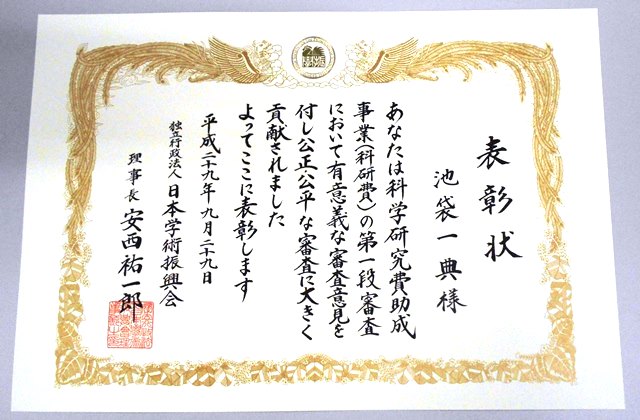 表彰状
池袋一典様
あなたは科学研究費助成
事業(科研費)の第一段審査
において有意義な審査意見を
付し公正・公平な審査に大きく
貢献されました
よってここに表彰します
平成二十九年九月二十九日
独立行政法人日本学術振興会
理事長 安西祐一郎